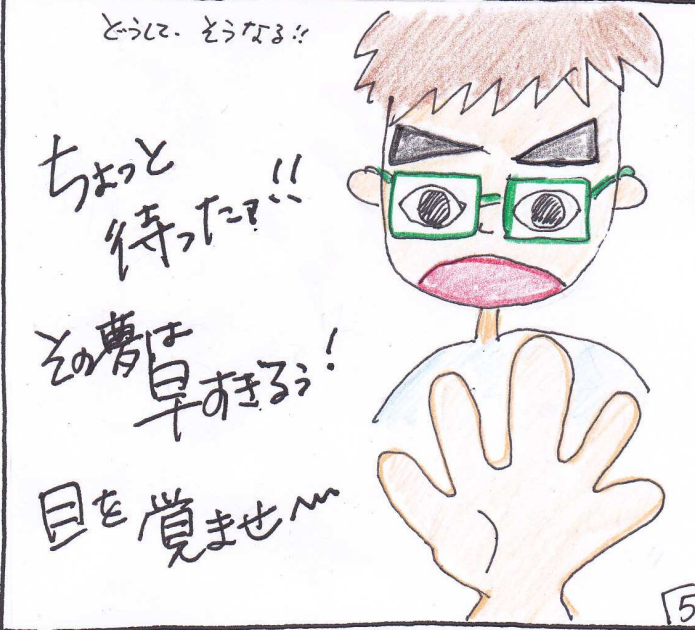 どうして、そうなる!!
ちょっと
待ったァ!!
その夢は
早すぎるぅ!
目を覚ませ〜
5